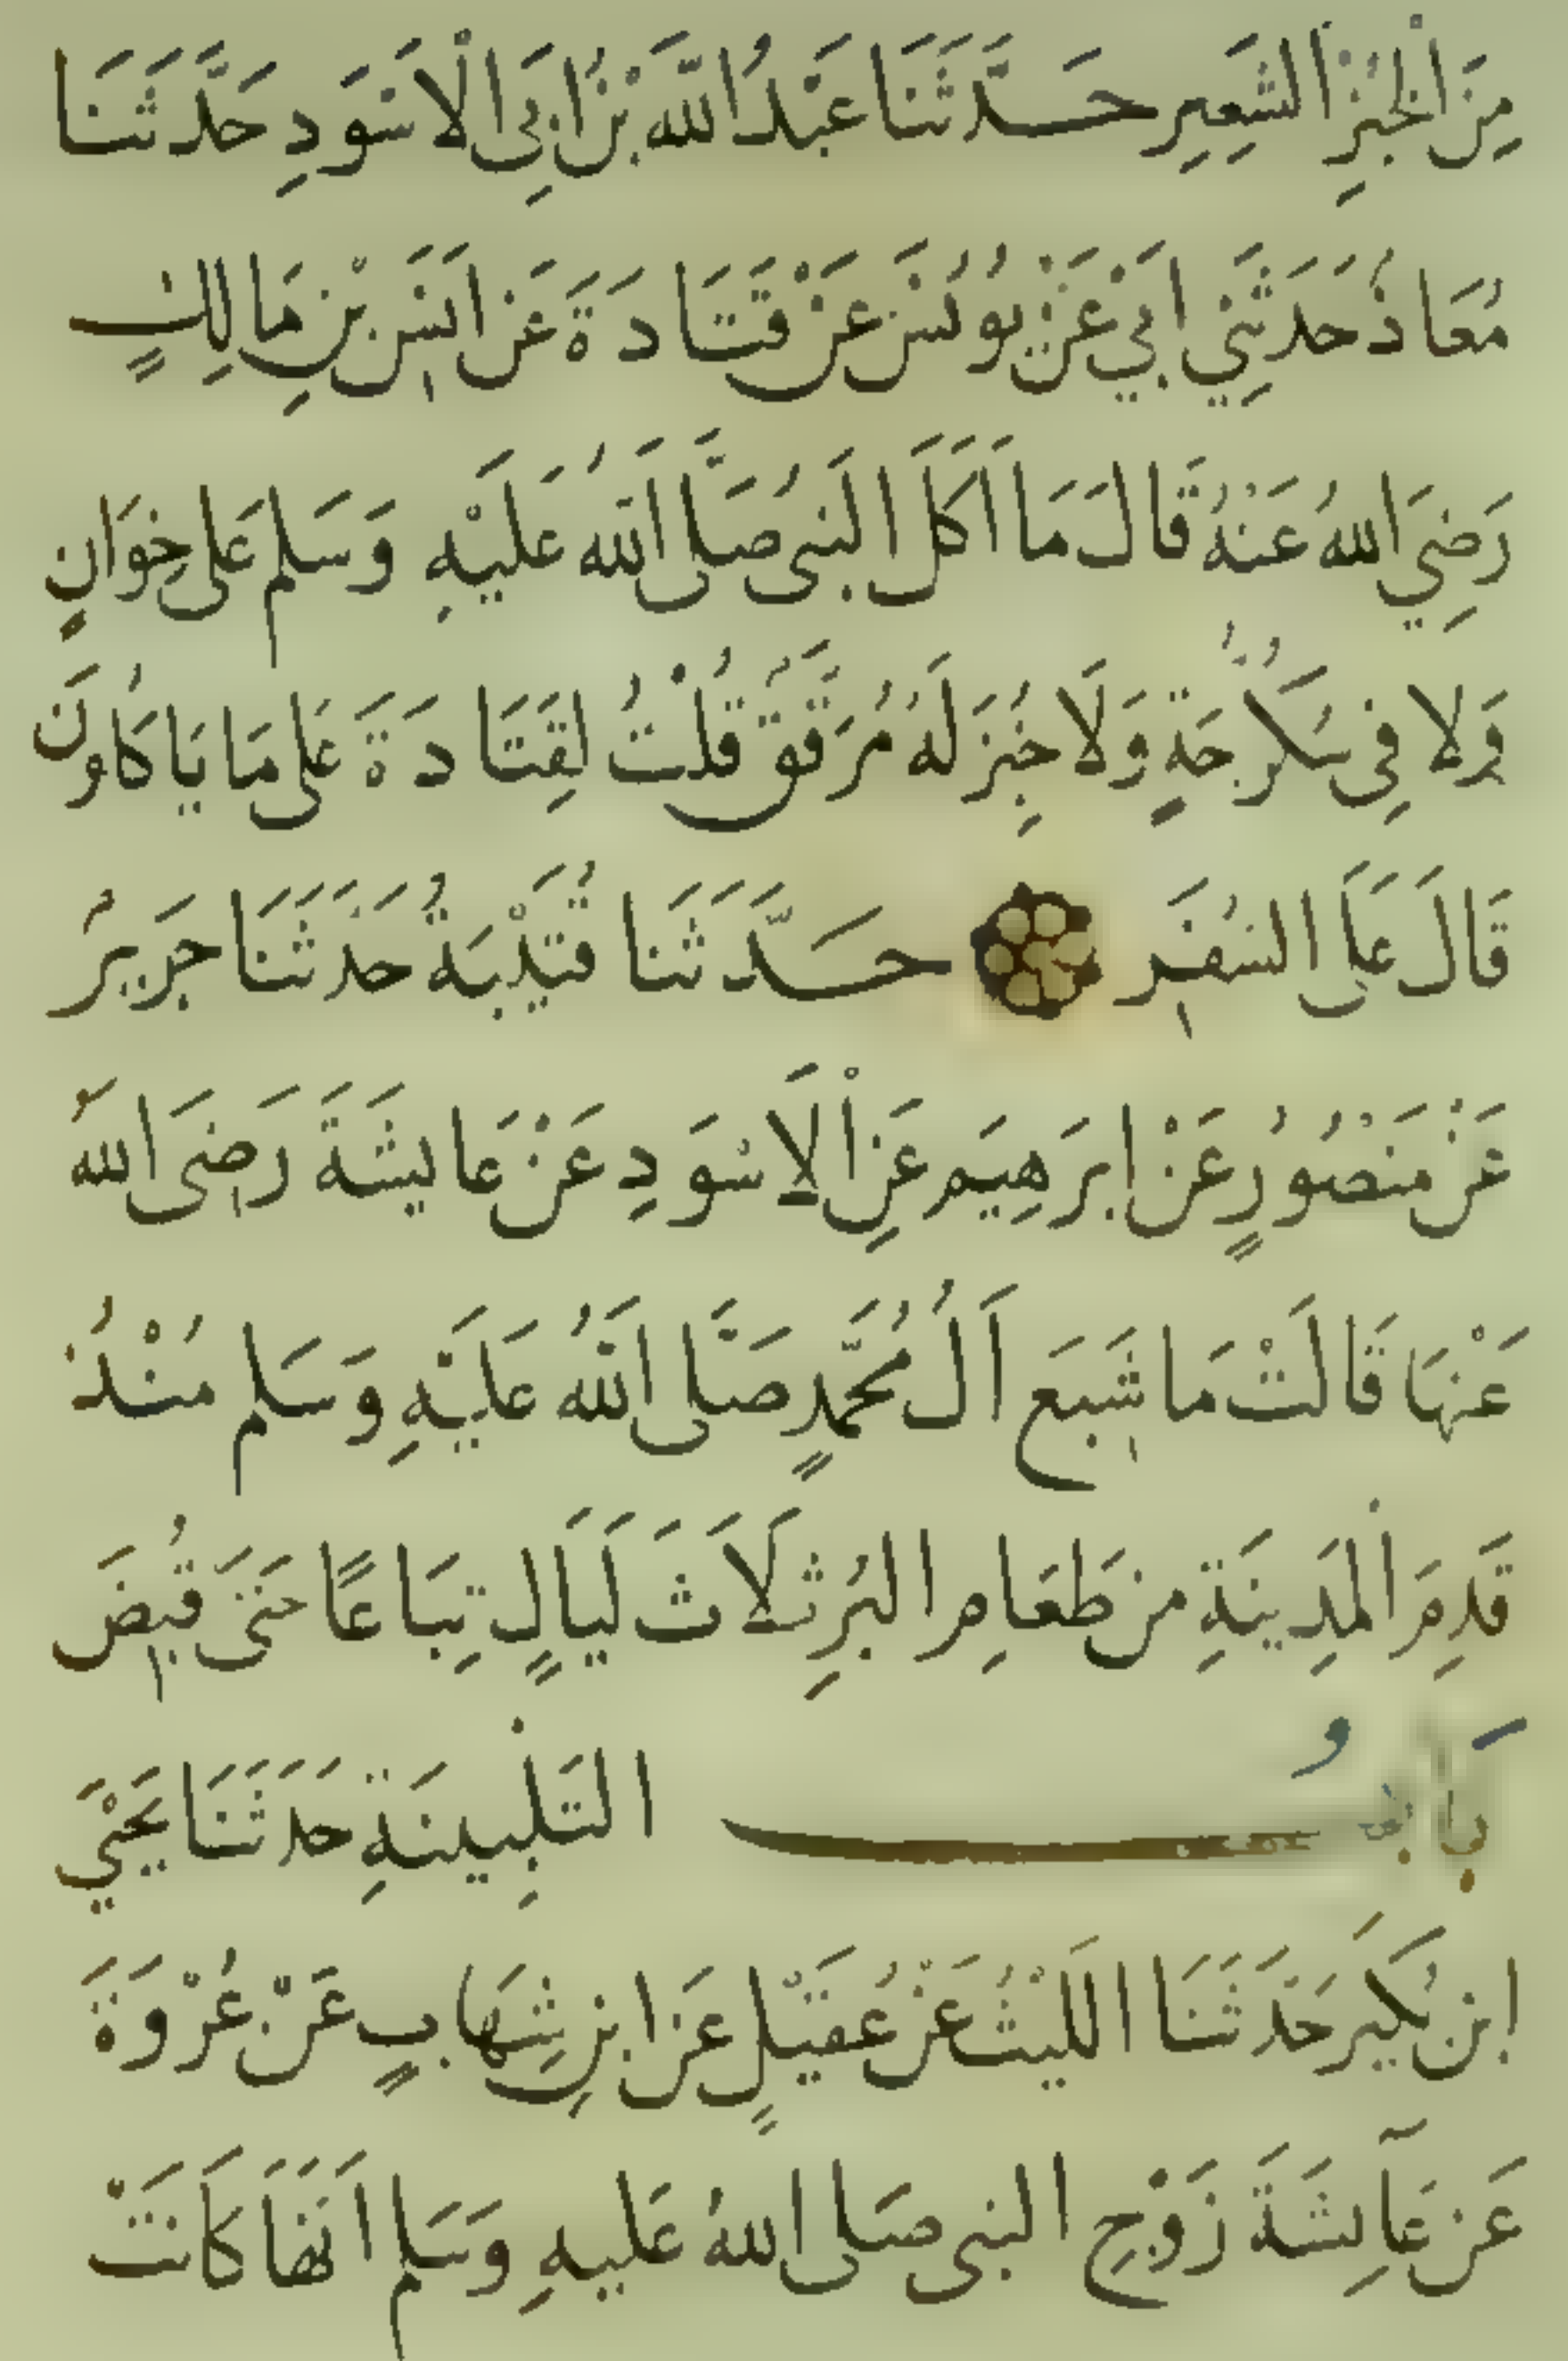 مِنَ الْخُبْزِ الشَّعِيرِ حَدَّثَنَا عَبْدُ اللَّه بْنُ ابِي الْاَسْوَدِ حَدَّثَنَا
مُعَاذُ حَدَثَنِي ابِي عَنْ يُونُسَ عَنْ قَتَادَةَ عَن انَسِ بْنِ مَالِكٍ
رَضِيَ اللهُ عَنْهُ قَالَ مَا اَكَلَ النَبىُ صَلَّى اَللهُ عَلَيْهِ وَسَلم عَلى خِوَانٍ
وَلا فِى سُكُرُّجَةٍ وَلَا خُبِزَ لَهُ مُرَقَّقٌ قُلْتُ لِقَتَادَةَ عَلى مَا يَاكُلونَ
قَالَ عَلَى السُفَرِ حَدَّثَنا قُتَيْبَةُ حَدَثَنَا جَرِيرٌ
عَنْ مَنْصُورٍ عَنْ ابرَهِيَم عَنِ الْاَسْوَدِ عَنْ عَايشَةَ رَضِىَ اللهُ
عَنْهَا قَالَتْ مَا شَبِعَ اَلُ مُحَمَّدٍ صَلَّى اَللهُ عَلَيْهِ وَسَلم مُنْذُ
قَدِمَ الْمَدِينَةِ مِن طَعَامِ البُرِ ثَلَاثَ لَيَالٍ تِبَاعًا حَتَى قُبِضَ
بَابُ التَلْبِينَةِ حَدَثَنَا يَحْيَي
ابن بُكَير حَدَّثَنَا اللَيْثُ عَنْ عُقَيْلٍ عَن ابنِ شِهَابٍ عَنْ عُرْوَةَ
عَن عَآيِشَةَ زَوْجِ النبى صَلى اللهُ عَليهِ وَسَلم اَنَهَا كَانَتْ